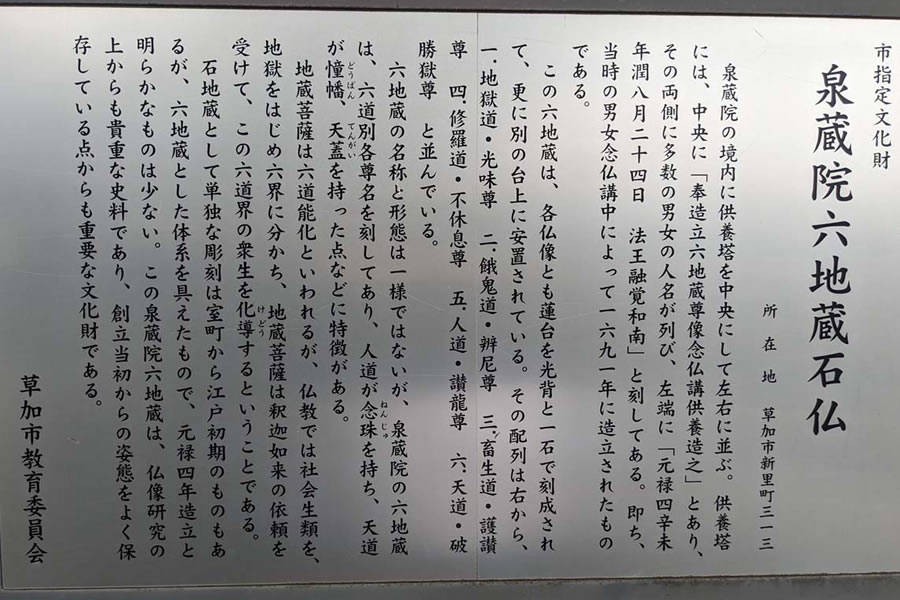 市指定文化財
泉蔵院六地蔵石仏
所在地　草加市新里町三一三
泉蔵院の境内に供養塔を中央にして左右に並ぶ。供養塔
には、中央に「奉造立六地蔵尊像念仏講供養造之」とあり、
その両側に多数の男女の人名が列び、左端に「元禄四辛未
年潤八月二十四日　法王融覚和南」と刻してある。即ち、
当時の男女念仏講中によって一六九一年に造立されたもの
である。
この六地蔵は、各仏像とも蓮台を光背と一石で刻成され
て、更に別の台上に安置されている。その配列は右から、
一．地獄道・光味尊　二．餓鬼道・辨尼尊　三．畜生道・護讃
尊　四．修羅道・不休息尊　五．人道・讃龍尊　六．天道・破
勝獄尊　と並んでいる。
六地蔵の名称と形態は一様ではないが、泉蔵院の六地蔵
は、六道別各尊名を刻してあり、人道が念珠を持ち、天道
が憧幡、天蓋を持った点などに特徴がある。
地蔵菩薩は六道能化といわれるが、仏教では社会生類を、
地獄をはじめ六界に分かち、地蔵菩薩は釈迦如来の依頼を
受けて、この六道界の衆生を化導するということである。
石地蔵として単独な彫刻は室町から江戸初期のものもあ
るが、六地蔵とした体系を具えたもので、元禄四年造立と
明らかなものは少ない。この泉蔵院六地蔵は、仏像研究の
上からも貴重な史料であり、創立当初からの姿態をよく保
存している点からも重要な文化財である。
草加市教育委員会